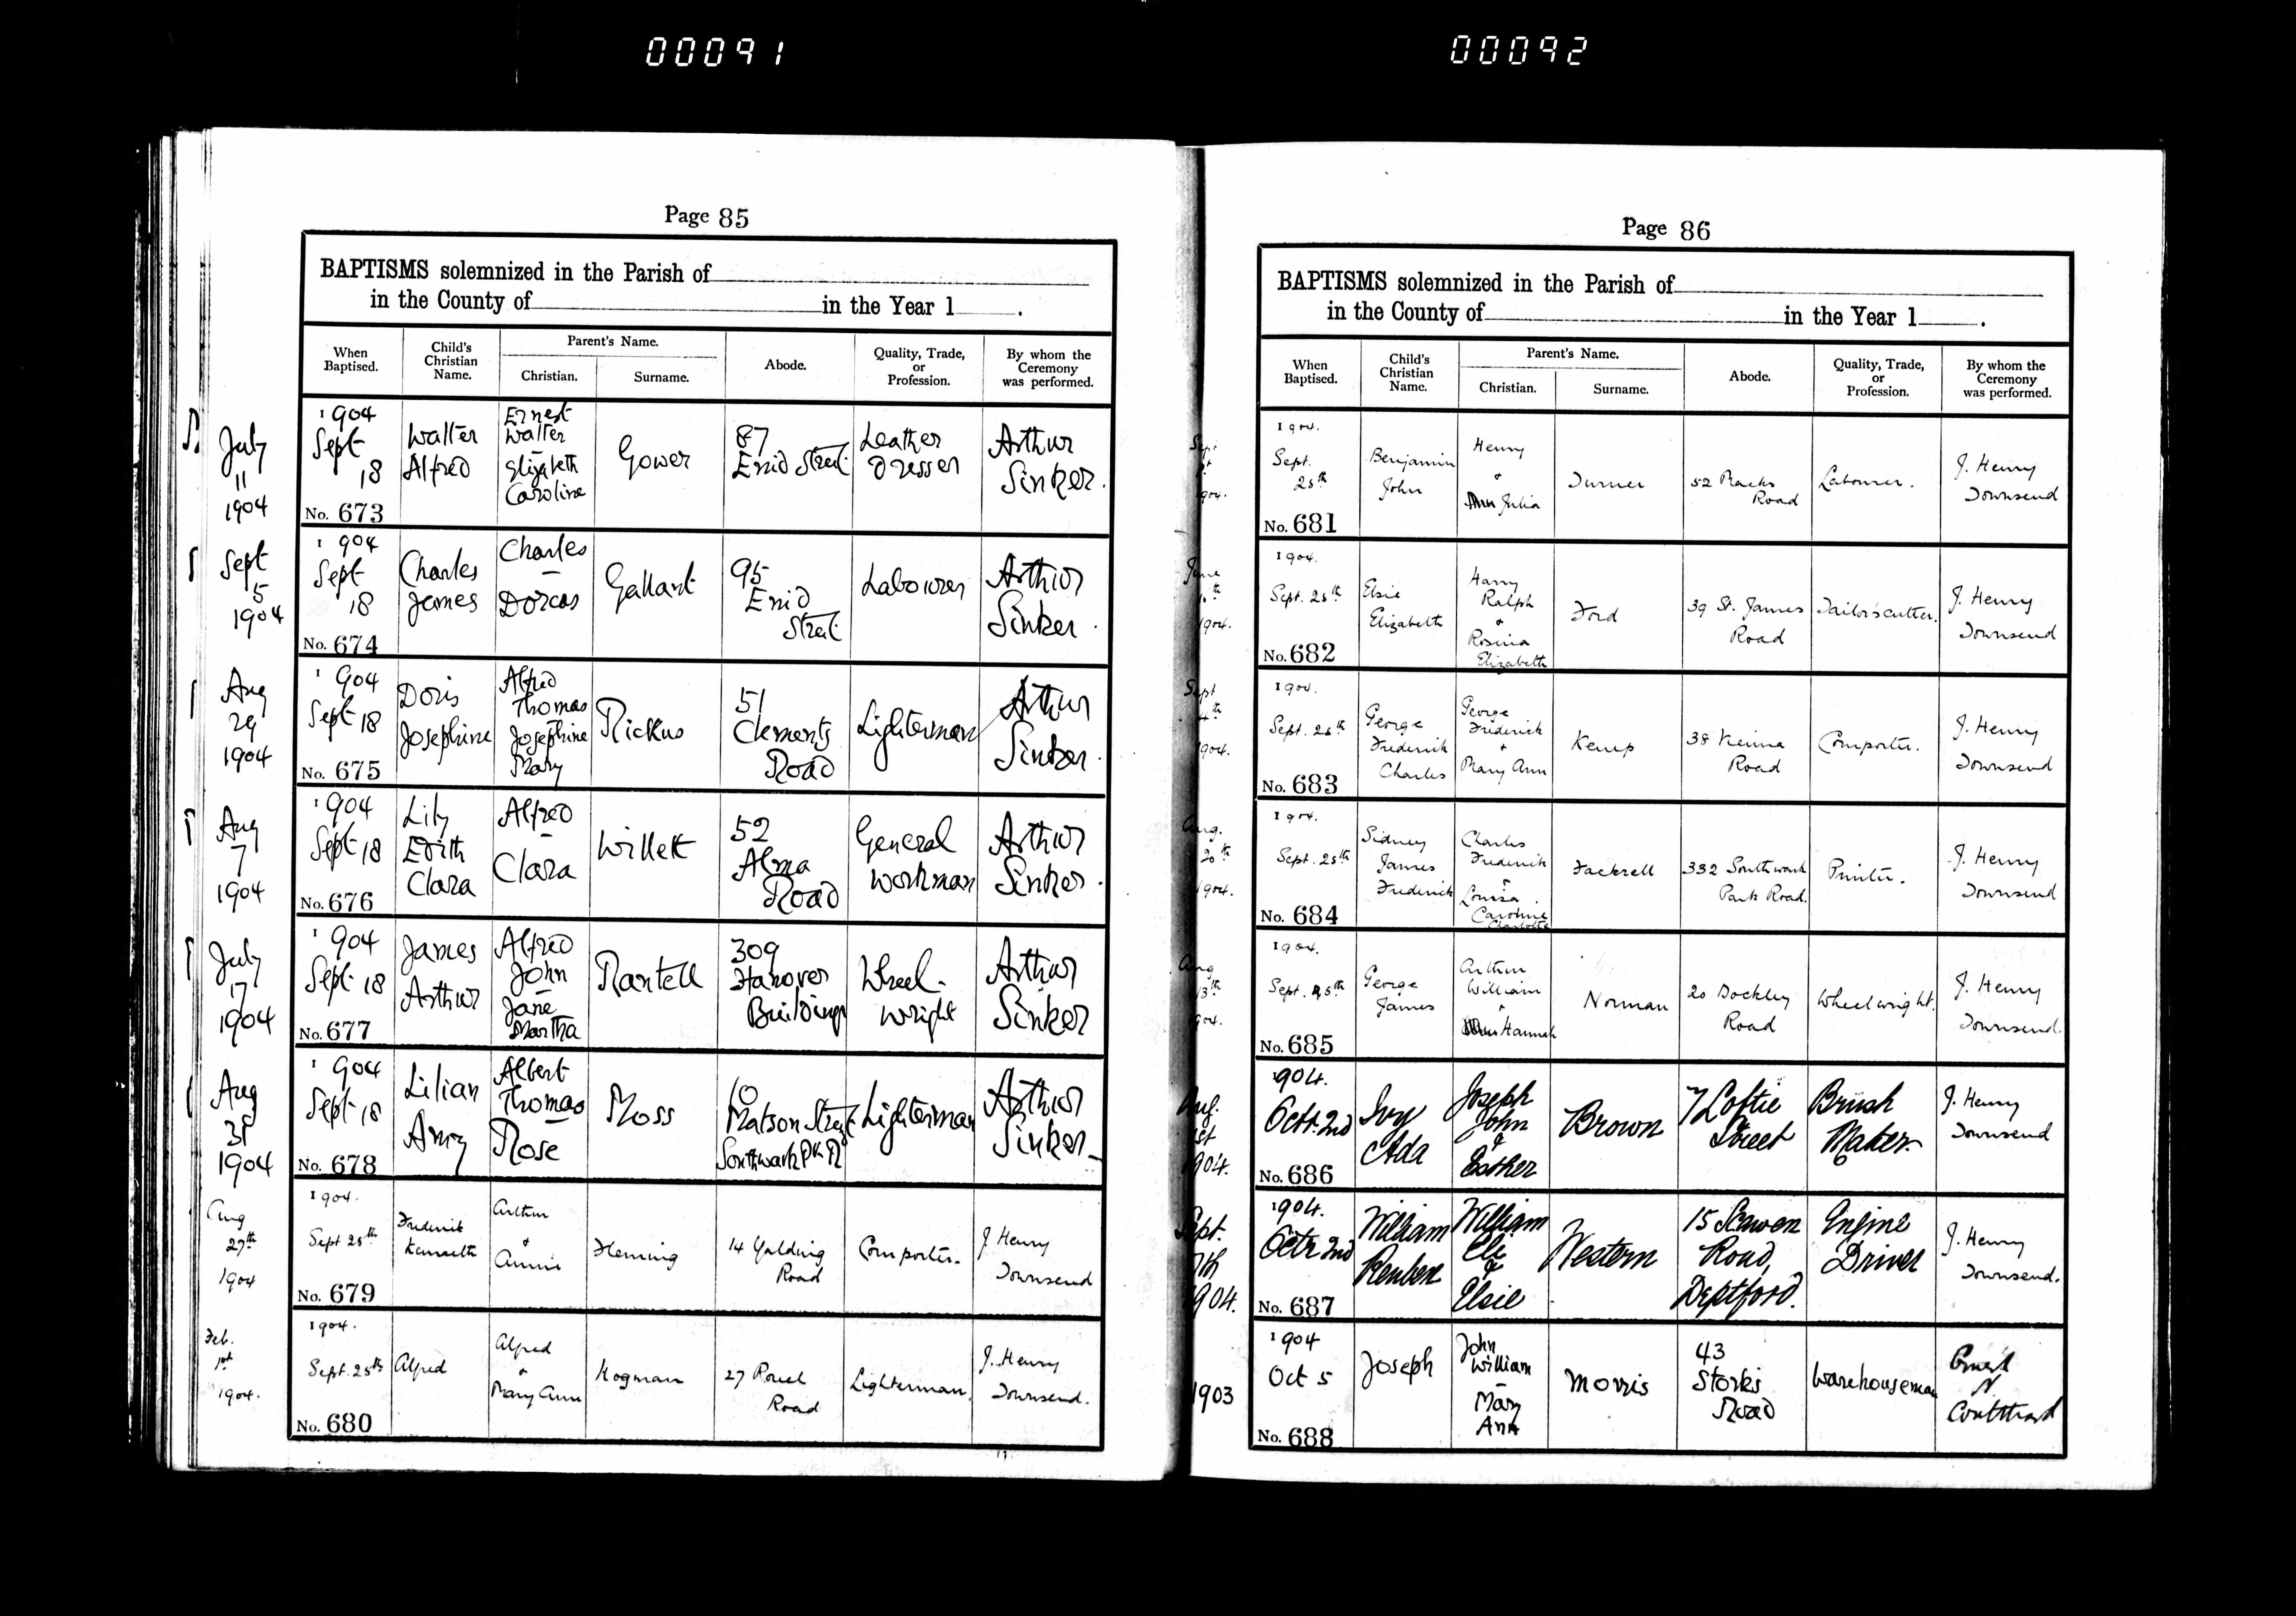 00091
00092
Page 85
BAPTISMS solemnized in the Parish of
in the County of in the Year 1 .
When Baptised. Child's Christian Name. Parent's Name. Christian. Surname. Abode. Quality, Trade, or Profession. By whom the Ceremony was performed.
July 11 1904
1904 Sept 18 No. 673 Walter Alfred Ernest Walter – Elizabeth Caroline Gower 87 Enid Street Leather Dresser Arthur Sinker.
Sept 5 1904
1904 Sept 18 No. 674 Charles James Charles – Dorcas Gallant 95 Enid Street Labourer Arthur Sinker.
Aug 29 1904
1904 Sept 18 No. 675 Doris Josephine Alfred Thomas – Josephine Mary Rickus 51 Clements Road Lighterman Arthur Sinker.
Aug 7 1904
1904 Sept 18 No. 676 Lily Edith Clara Alfred – Clara Willett 52 Alma Road General Workman Arthur Sinker.
July 17 1904
1904 Sept 18 No. 677 James Arthur Alfred John – Jane Martha Rantell 309 Hanover Buildings Wheel-wright Arthur Sinker
Aug 31 1904
1904 Sept 18 No. 678 Lilian Amy Albert Thomas – Rose Moss 10 Matson Street Southwark Pk Rd Lighterman Arthur Sinker
Aug 27th 1904
1904. Sept 25th No. 679 Frederick Kenneth Arthur & Annie Fleming 14 Yalding Road Compositor. J. Henry Townsend
Feb. 1st 1904.
1904. Sept. 25th No. 680 Alfred Alfred & Mary Ann Hogman 27 Rouel Road Lighterman. J. Henry Townsend.
Page 86
BAPTISMS solemnized in the Parish of
in the County of in the Year 1 .
When Baptised. Child's Christian Name. Parent's Name. Christian. Surname. Abode. Quality, Trade, or Profession. By whom the Ceremony was performed.
1904.
1904. Sept. 25th No. 681 Benjamin John Henry & Julia Turner 52 Road Labourer. J. Henry Townsend
June 1904.
1904. Sept. 25th No. 682 Elsie Elizabeth Harry Ralph & Rosina Elizabeth Ford 39 St. James Road Tailor's cutter. J. Henry Townsend
Sept 4th 1904.
1904. Sept. 25th No. 683 George Frederick Charles George Frederick & Mary Ann Kemp 38 Vienna Road Compositor. J. Henry Townsend
Aug. 20th 1904.
1904. Sept. 25th No. 684 Sidney James Frederick Charles Frederick & Louisa Caroline Charlotte Fackrell 332 Southwark Park Road. Printer. J. Henry Townsend
Aug 13th 1904.
1904. Sept. 25th No. 685 George James Arthur William & Hannah Norman 20 Dockley Road Wheelwright. J. Henry Townsend.
Aug. 1st 1904.
1904. Octr. 2nd No. 686 Ivy Ada Joseph John & Esther Brown 7 Loftie Street Brush Maker. J. Henry Townsend
Sept. 7th 1904.
1904. Octr 2nd No. 687 William Reuben William Eli & Elsie Western 15 Scawen Road, Deptford. Engine Driver J. Henry Townsend.
1903
1904 Oct 5 No. 688 Joseph John William – Mary Ann Morris 43 Storks Road Warehouseman Ernest N